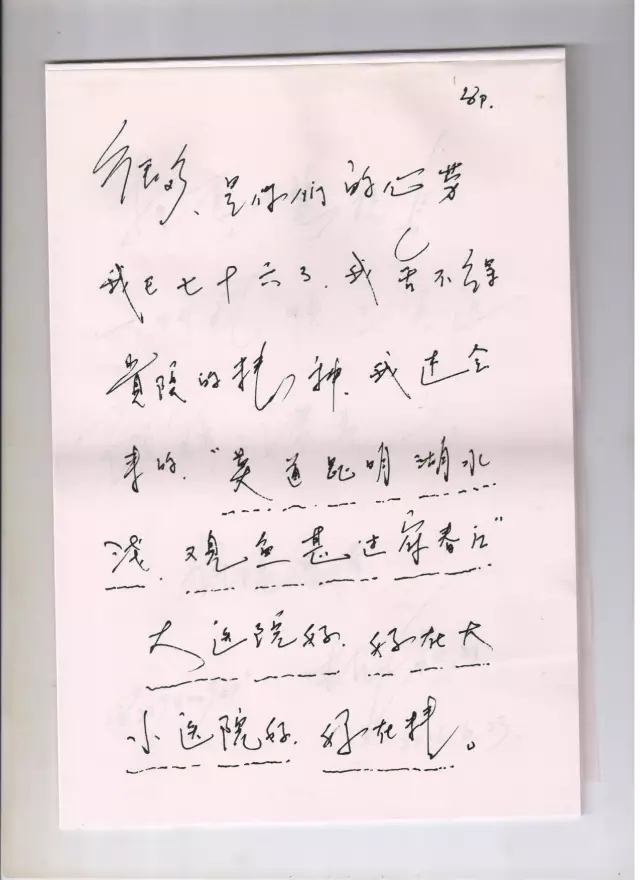 是你们的心劳
我已七十六了.我不
贵院的精神.我还会
来的."莫道昆明湖水
浅.观鱼甚过富春江"
大医院好.好在大
小医院好.好在精。